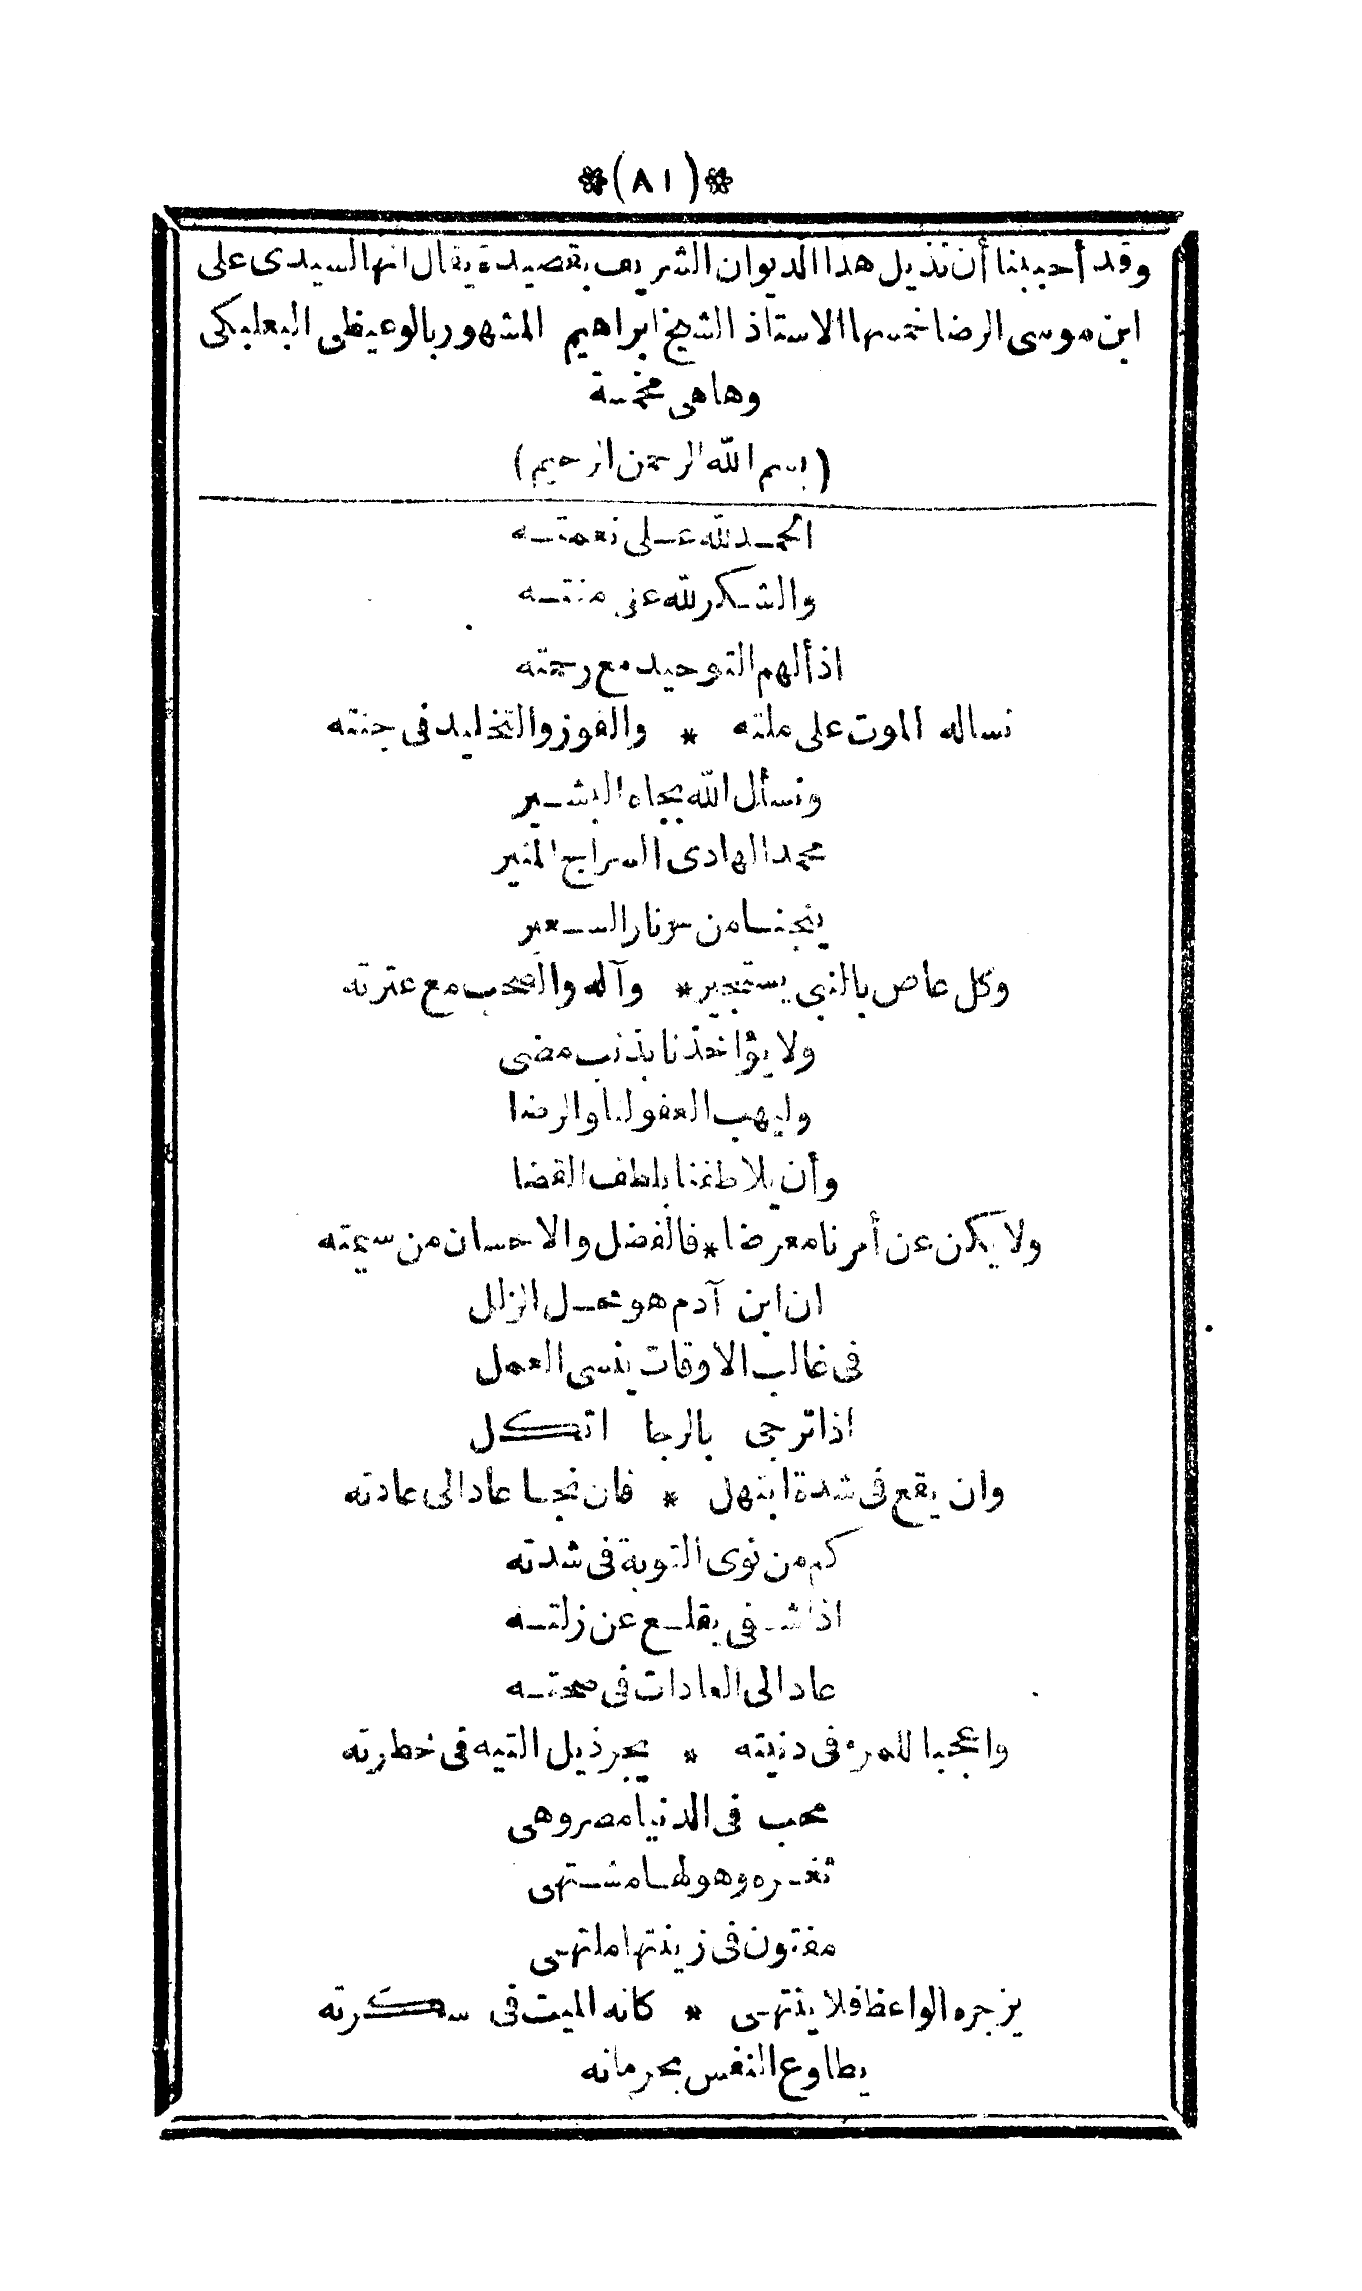 *(٨١)*
وقد أحببنا أن نذيل هذا الديوان الشريف بقصيدة يقال انها السيدى على
ابن موسى الرضا خمسها الاستاذ الشيخ ابراهيم المشهور بالوعيظى البعلبكى
وها هى مخمسة
(بسم الله الرحمن الرحيم)
الحمد لله على نعمته
والشكر لله على منته
اذ ألهم التوحيد مع رحمته
نساله الموت على ملته * والفوز والتخليد فى جنته
ونسأل الله بجاه البشير
محمد الهادى السراج المنير
ينجنا من حر نار السعير
وكل عاص بالنبى يستجير * وآله والصحب مع عترته
ولا يؤاخذنا بذنب مضى
وليهب العفو لنا والرضا
وأن يلاطفنا بلطف القضا
ولا يكن عن أمرنا معرضا * فالفضل والاحسان من سيمته
ان ابن آدم هو محل الزلل
فى غالب الاوقات ينسى العمل
اذا ترجى بالرجا اتكل
وان يقع فى شدة ابتهل * فان نجا عاد الى عادته
كم من نوى التوبة فى شدته
اذا شفى يقلع عن زلته
عاد الى العادات فى صحته
واعجبا للمرء فى دنيته * يجر ذيل التيه فى خطرته
محب فى الدنيا مصر وهى
تغره وهو لها مشتهى
مفتون فى زينتها ملتهى
يزجره الواعظ فلا ينتهى * كانه الميت فى سكرته
يطاوع النفس بحرمانه